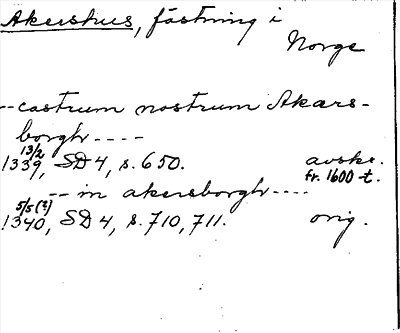 Akershus, fästning i
Norge
-- castrum nostrum Akars-
borghr ----
13/2
1339, SD 4, s. 650. avskr.
fr. 1600-t.
-- in akersborghr ----
5/5 (?)
1340, SD 4, s. 710, 711. orig.